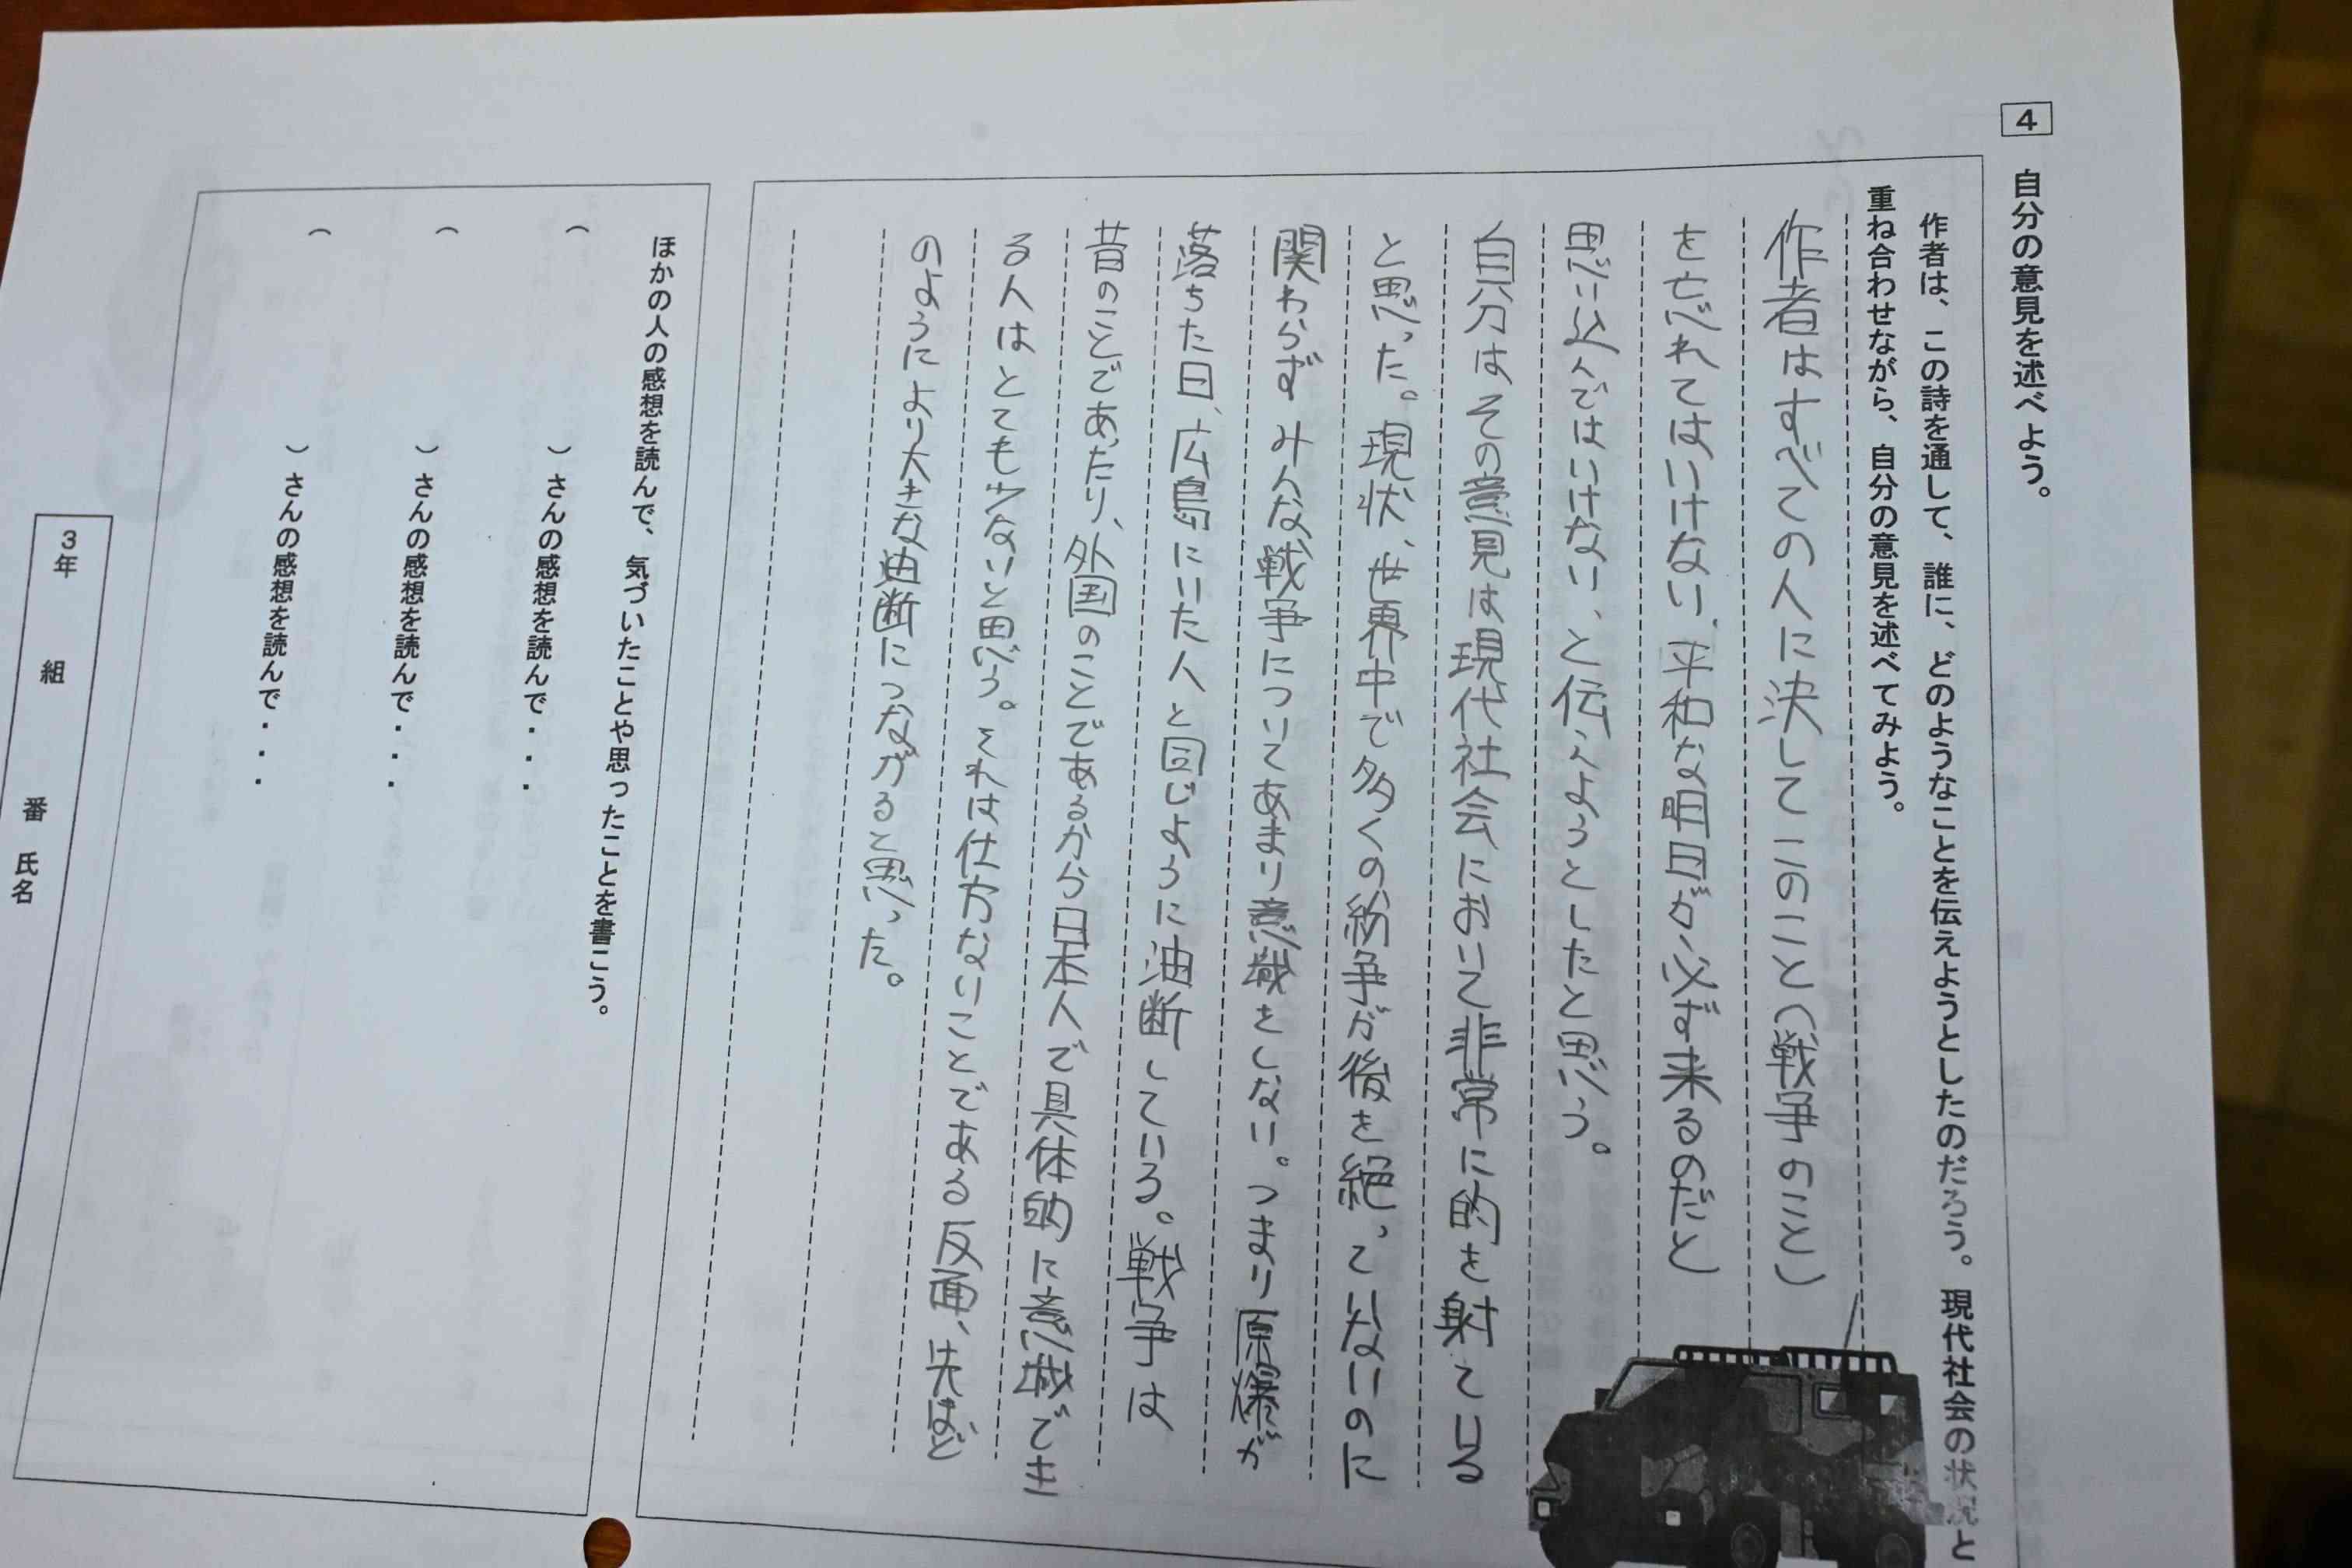 4 自分の意見を述べよう。
作者は、この詩を通して、誰に、どのようなことを伝えようとしたのだろう。現代社会の状況と
重ね合わせながら、自分の意見を述べてみよう。
作者はすべての人に決してこのこと(戦争のこと)
を忘れてはいけない、平和な明日が必ず来るのだと
思い込んではいけない、と伝えようとしたと思う。
自分はその意見は現代社会において非常に的を射ている
と思った。現状、世界中で多くの紛争が後を絶っていないのに
関わらずみんな戦争についてあまり意識をしない。つまり原爆が
落ちた日、広島にいた人と同じように油断している。戦争は
昔のことであったり、外国のことであるから日本人で具体的に意識でき
る人はとても少ないと思う。それは仕方ないことである反面、先ほど
のようにより大きな油断につながると思った。
ほかの人の感想を読んで、気づいたことや思ったことを書こう。
( )さんの感想を読んで・・・
( )さんの感想を読んで・・・
( )さんの感想を読んで・・・
3年 組 番 氏名